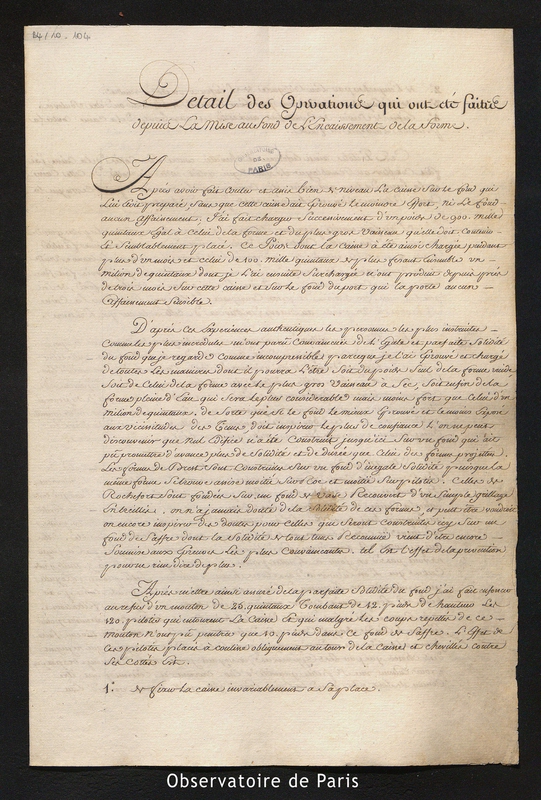 84/10-104
Detail des Operations qui ont eté faites
depuis La Mise au fond de L'Encaissement de la forme.
PARIS
Après avoir fait Couler et assis bien de niveau La Caisse Sur le fond qui
Lui étoit préparé, Sans que cette caisse ait Eprouvé le moindre Effort, ni Le fond
aucun affaissement. J'ai fait charger Successivement d'un poids de 900. mille
quintaux Egal à celui de la forme et du plus gros Vaisseau qu'elle doit contenir
Ce Poids dont la Caisse à été ainsi chargée pendant
plus d'un mois et celui de 100. mille quintaux de plus faisant Ensemble un
million de quintaux dont je L'ai ensuite Surchargée n'ont produit depuis près
de trois mois Sur cette caisse et Sur le fond du port qui la porte aucun
affaissement Sensible.
D'après ces Expériences authentiques les personnes les plus instruites
Comme les plus incrédules m'ont paru Convaincues de L'Egale et parfaite Solidité
du fond que je regarde comme incompressible parceque je l'ai Eprouvé et chargé
de toutes les manieres dont il pourra L'être Soit du poids Seul de la forme vuide
Soit de Celui de la forme avec le plus gros Vaisseau à Sec, Soit enfin de la
forme pleine d'Eau qui Sera le plus considerable mais moins fort que celui d'un
million de quintaux, de Sorte que Si le fond le mieux Eprouvé et le moins Exposé
aux vicissitudes des Tems, doit inspirer le plus de confiance L'on ne peut
disconvenir que Nul Edifice n'a été Construit jusqu'ici Sur un fond qui ait
pu promettre d'avance plus de Solidité et de durée que Celui des formes projettées.
Les formes de Brest Sont Construites Sur un fond d'inégale Solidité puisque la
même forme Se trouve assise moitié Sur Roc et moitié Sur pilotis. Celles de
Rochefort Sont fondées Sur un fond de Vase Recouvert d'un Simple grillage
on n'a jamais douté de la Solidité de ces formes, et peut être voudroit
on encore inspirer des doutes pour celles qui Seront construites icy Sur un
fond de Saffre dont la Solidité vient d'être encore
Soumise aux Epreuves Les plus Convaincantes. tel Est L'effet de la prévention
pour ne rien dire de plus.
Après m'être ainsi assuré de la parfaite Solidité du fond j'ai fait enfoncer
au refus d'un mouton de 25. quintaux Tombant de 12. pieds de hauteur Les
120. pilotis qui entourent La Caisse et qui malgré les coups repetés de ce
mouton n'ont pu penétrer que 10. pieds dans ce fond de Saffre. L'Effet de
ces pilotis placés à coulisse obliquement au tour de la Caisse et chevillés contre
Ses Cotés Est.
1.° de fixer la Caisse invariablement a Sa place.
Observatoire de Paris